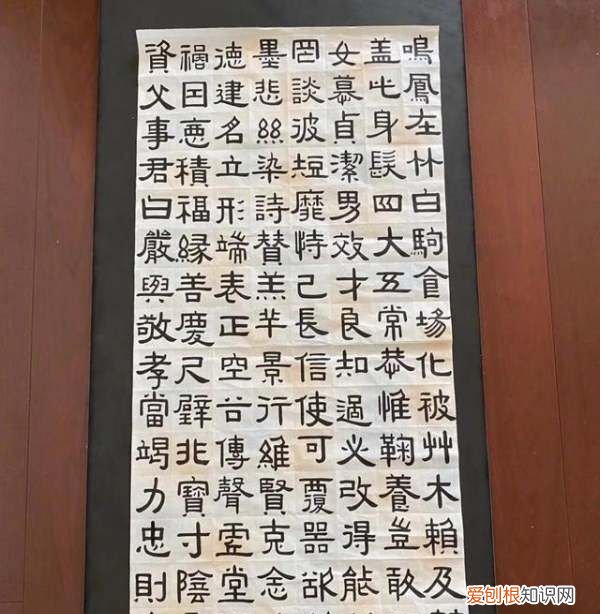 鳴鳳在竹白駒食場化被艸木賴及
蓋此身髮四大五常恭惟鞠養豈敢
女慕貞潔男效才良知過必改得能
罔談彼短靡恃己長信使可覆器欲
墨悲絲染詩贊羔羊景行維賢克念
徳建名立形端表正空谷傳聲虛堂
禍因惡積福緣善慶尺璧非寶寸陰
資父事君曰嚴與敬孝當竭力忠則
爱刨根知识网